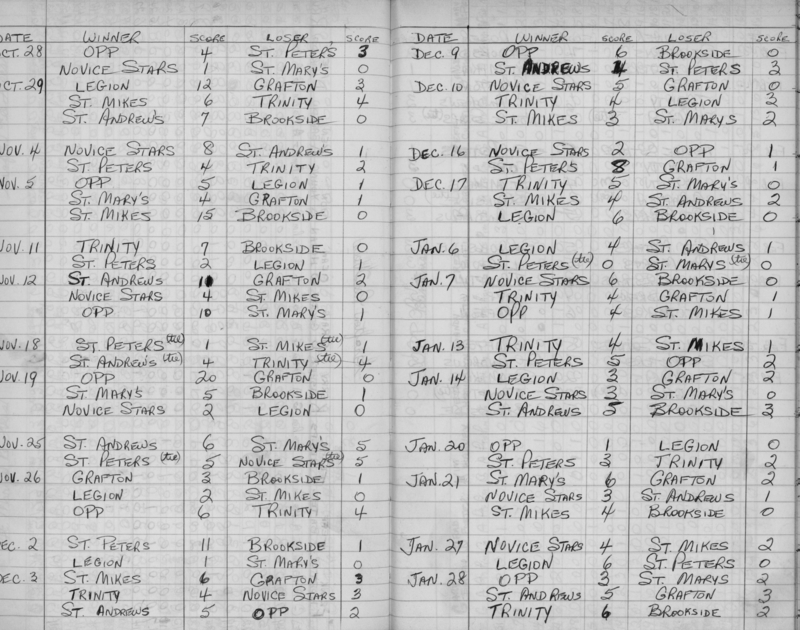 DATE WINNER SCORE LOSER SCORE
OCT. 28 OPP 4 ST. PETERS 3
NOVICE STARS 1 ST. MARY'S 0
OCT. 29 LEGION 12 GRAFTON 3
ST. MIKES 6 TRINITY 4
ST. ANDREWS 7 BROOKSIDE 0
NOV. 4 NOVICE STARS 8 ST. ANDREWS 1
ST. PETERS 4 TRINITY 2
NOV. 5 OPP 5 LEGION 1
ST. MARY'S 4 GRAFTON 1
ST. MIKES 15 BROOKSIDE 0
NOV. 11 TRINITY 7 BROOKSIDE 0
ST. PETERS 2 LEGION 1
NOV. 12 ST. ANDREWS GRAFTON 2
NOVICE STARS 4 ST. MIKES 0
OPP 10 ST. MARY'S 1
NOV. 18 ST. PETERS (tie) 1 ST. MIKES (tie) 1
ST. ANDREWS (tie) 4 TRINITY (tie) 4
NOV. 19 OPP 20 GRAFTON 0
ST. MARY'S 5 BROOKSIDE 1
NOVICE STARS 2 LEGION 0
NOV. 25 ST. ANDREWS 6 ST. MARY'S 5
ST. PETERS (tie) 5 NOVICE STARS (tie) 5
NOV. 26 GRAFTON 3 BROOKSIDE 1
LEGION 2 ST. MIKES 0
OPP 6 TRINITY 4
DEC. 2 ST. PETERS 11 BROOKSIDE 1
LEGION 1 ST. MARY'S 0
DEC. 3 ST. MIKES 6 GRAFTON 3
TRINITY 4 NOVICE STARS 3
ST. ANDREWS 5 OPP 2
DATE WINNER SCORE LOSER SCORE
DEC. 9 OPP 6 BROOKSIDE 0
ST. ANDREWS 4 ST. PETERS 3
DEC. 10 NOVICE STARS 5 GRAFTON 0
TRINITY 4 LEGION 3
ST. MIKES 3 ST. MARYS 2
DEC. 16 NOVICE STARS 2 OPP 1
ST. PETER'S 8 GRAFTON 1
DEC. 17 TRINITY 5 ST. MARY'S 0
ST. MIKES 4 ST. ANDREWS 2
LEGION 6 BROOKSIDE 0
JAN. 6 LEGION 4 ST. ANDREWS 1
ST. PETERS (tie) 0 ST. MARYS (tie) 0
JAN. 7 NOVICE STARS 6 BROOKSIDE 0
TRINITY 4 GRAFTON 1
OPP 4 ST. MIKES 1
JAN. 13 TRINITY 4 ST. MIKES 1
ST. PETERS 5 OPP 2
JAN. 14 LEGION 3 GRAFTON 2
NOVICE STARS 3 ST. MARY'S 0
ST. ANDREWS 5 BROOKSIDE 3
JAN. 20 OPP 1 LEGION 0
ST. PETERS 3 TRINITY 2
JAN. 21 ST. MARY'S 6 GRAFTON 2
NOVICE STARS 3 ST. ANDREWS 1
ST. MIKES 4 BROOKSIDE 0
JAN. 27 NOVICE STARS 4 ST. MIKES 2
LEGION 6 ST. PETERS 0
JAN. 28 OPP 3 ST. MARYS 2
ST. ANDREWS 5 GRAFTON 3
TRINITY 6 BROOKSIDE 2